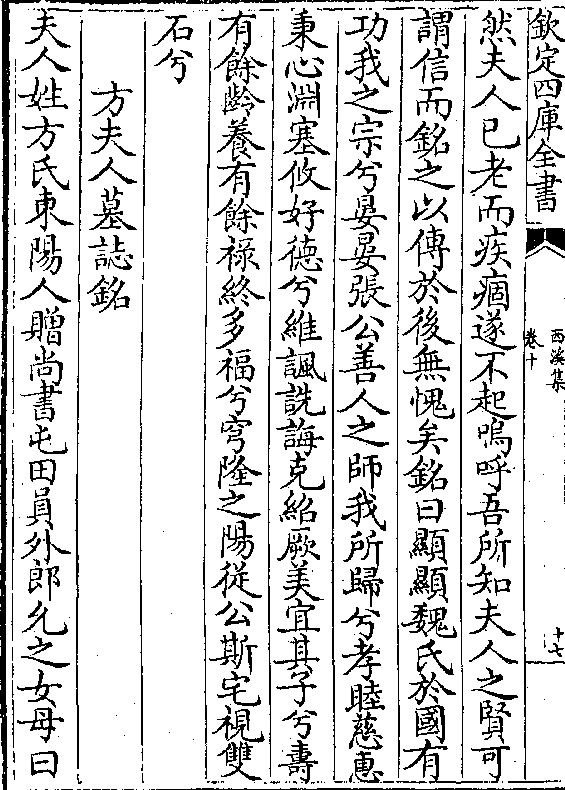 欽定四庫全書
西溪集
卷十
十七
然夫人已老而疾痼遂不起嗚呼吾所知夫人之賢可
謂信而銘之以傳於後無愧矣銘曰顯顯魏氏於國有
功我之宗兮晏晏張公善人之師我所歸兮孝睦慈惠
秉心淵塞攸好德兮維諷詵誨克紹厥美宜其子兮壽
有餘齡養有餘祿終多福兮穹隆之陽從公斯宅視雙
石兮
方夫人墓誌銘
夫人姓方氏東陽人贈尚書屯田員外郎允之女母曰